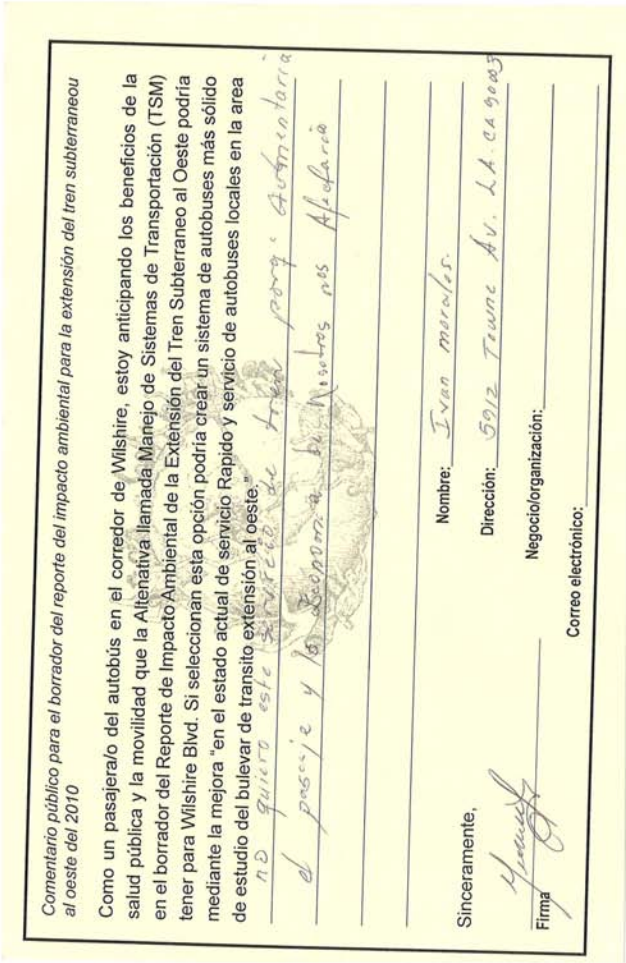 Comentario público para el borrador del reporte del impacto ambiental para la extensión del tren subterraneou
al oeste del 2010
Como un pasajera/o del autobús en el corredor de Wilshire, estoy anticipando los beneficios de la
salud pública y la movilidad que la Altenativa llamada Manejo de Sistemas de Transportación (TSM)
en el borrador del Reporte de Impacto Ambiental de la Extensión del Tren Subterraneo al Oeste podría
tener para Wilshire Blvd. Si seleccionan esta opción podría crear un sistema de autobuses más sólido
mediante la mejora "en el estado actual de servicio Rapido y servicio de autobuses locales en la area
de estudio del bulevar de transito extensión al oeste."
no quiero este servicio de tren porq. Aumentaria
el pasaje y la Economia de Nosotros nos Afectaria
Nombre: Ivan morales.
Dirección: 5912 Towne Av. LA. CA 90003
Sinceramente,
Negocio/organización:
Firma
Correo electrónico: